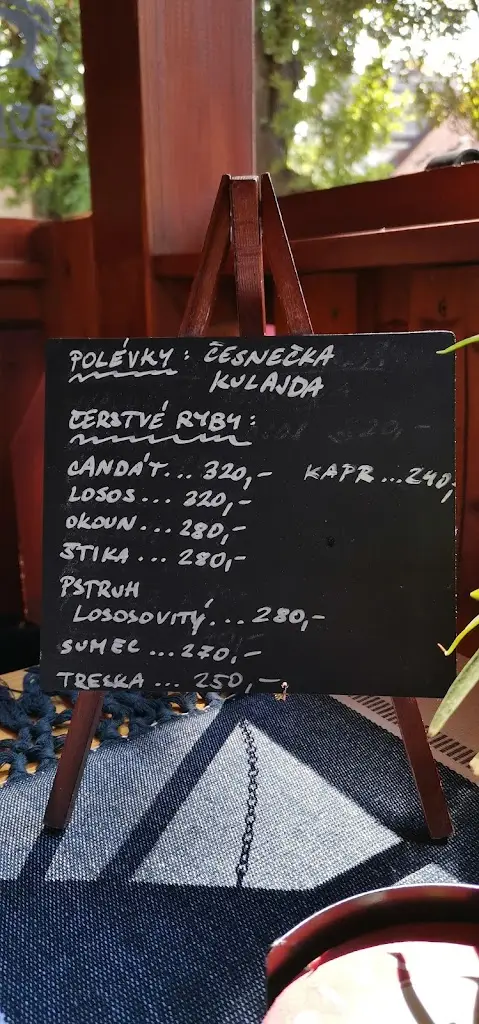 POLÉVKY: ČESNEČKA
KULAJDA
ČERSTVÉ RYBY:
CANDÁT... 320,- KAPR...240,-
LOSOS... 320,-
OKOUN... 280,-
ŠTIKA... 280,-
PSTRUH
LOSOSOVITÝ... 280,-
SUMEC... 270,-
TRESKA... 250,-